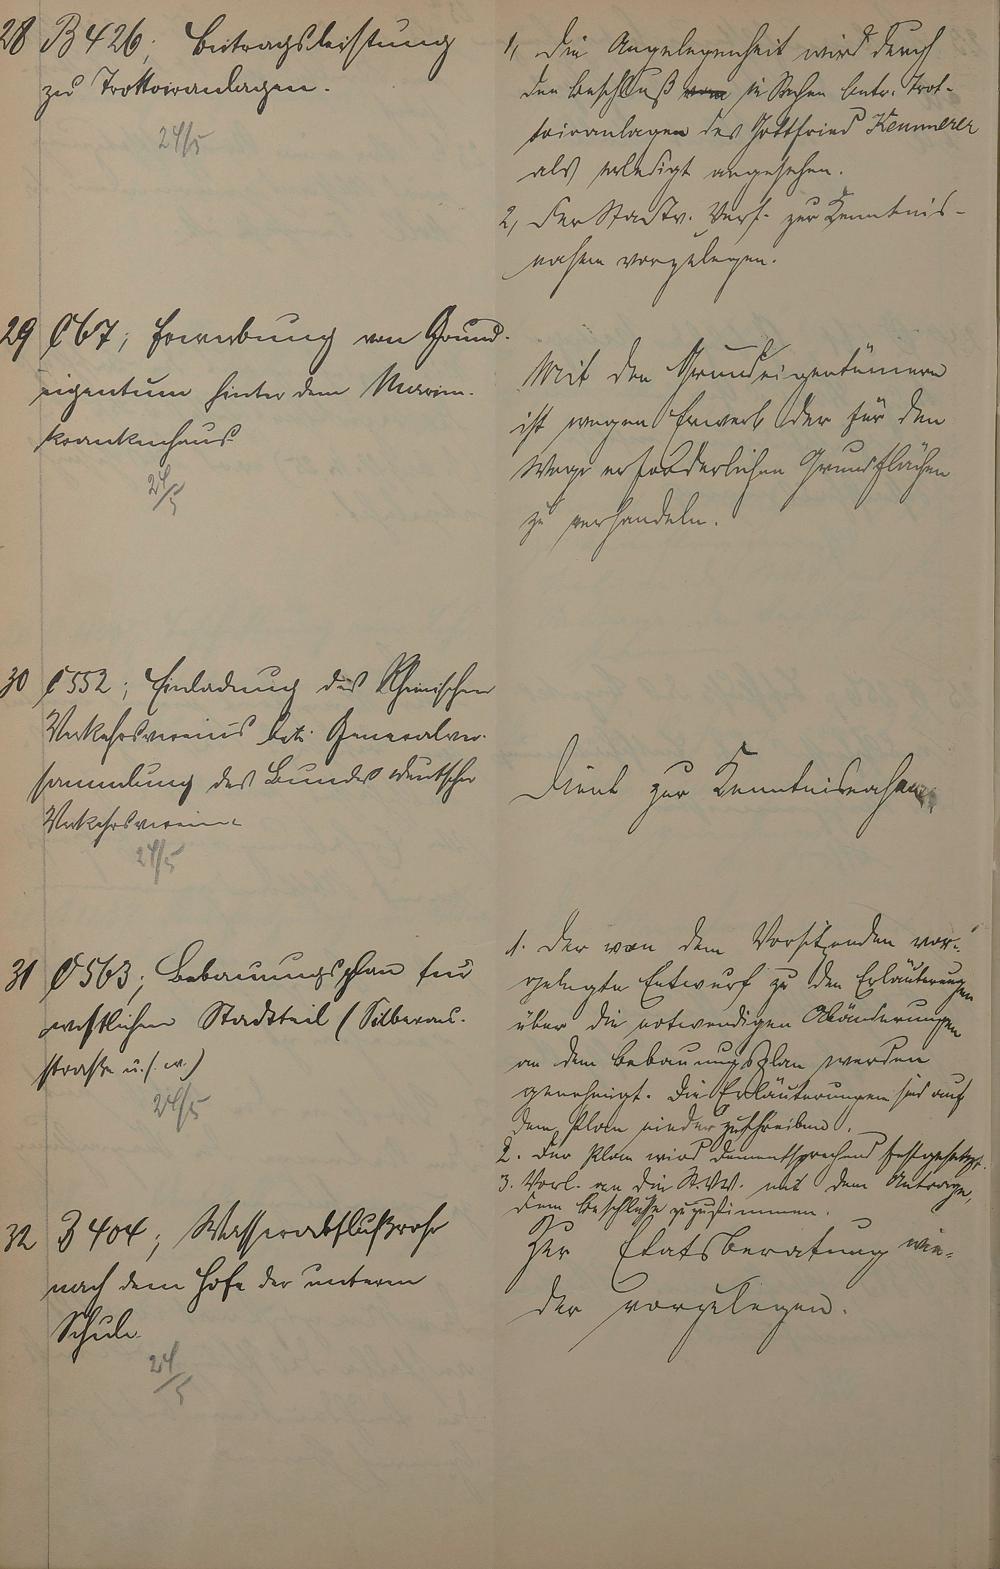 28 B 426; Beitragsleistung
zu Trottoiranlagen.
24/5
1, Die Angelegenheit wird durch
den Beschluß in Sachen betr. Trot-
toiranlagen des Gottfried Kemmerer
als erledigt angesehen.
2, Der Stadtv. Vers. zur Kenntnis-
nahme vorzulegen.
29 C 67; Erwerbung von Grund-
eigentum hinter dem Marien-
krankenhaus
24/5
Mit den Grundeigentümern
ist wegen Erwerb der für den
Weg erforderlichen Grundflächen
zu verhandeln.
30 C 552; Einladung des Rheinischen
Verkehrsvereins betr. Generalver-
sammlung des Bundes deutscher
Verkehrsvereine
24/5
Dient zur Kenntnisnahme
31 C 563; Bebauungsplan für
westlichen Stadtteil (Silberau-
straße u.s.w.)
24/5
1. Der von dem Vorsitzenden vor-
gelegte Entwurf zu den Erläuterungen
über die notwendigen Abänderungen
an dem Bebauungsplan werden
genehmigt. Die Erläuterungen sind auf
dem Plan niederzuschreiben.
2. Der Plan wird dementsprechend festgesetzt.
3. Vorl. an die St.V.V. mit dem Antrage,
dem Beschlusse zuzustimmen.
32 B 404; Wasserabflußrohr
nach dem Hofe der unteren
Schule.
24/5
Zur Etatsberatung wie-
der vorzulegen.